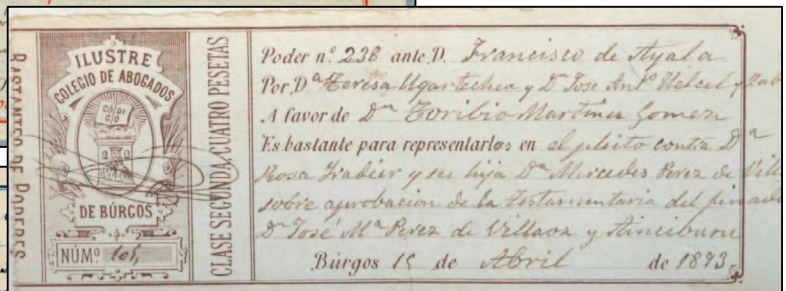 BASTANTEO DE PODERES
ILUSTRE
COLEGIO DE ABOGADOS
DE BÚRGOS
NÚMº
CLASE SEGUNDA, CUATRO PESETAS
Poder n.º 238 ante D. Francisco de Ayala
Por, D.ª Teresa Ugartechea y Dn Jose Antº
A favor de Dn Toribio Martinez Gomez
Es bastante para representarlos en el pleito contra Dª
Rosa Iradier y su hija Dª Mercedes Perez de
sobre aprobacion de la Testamentaria del
Dn José Mª Perez de Villaoz y
Búrgos 15 de Abril de 1893